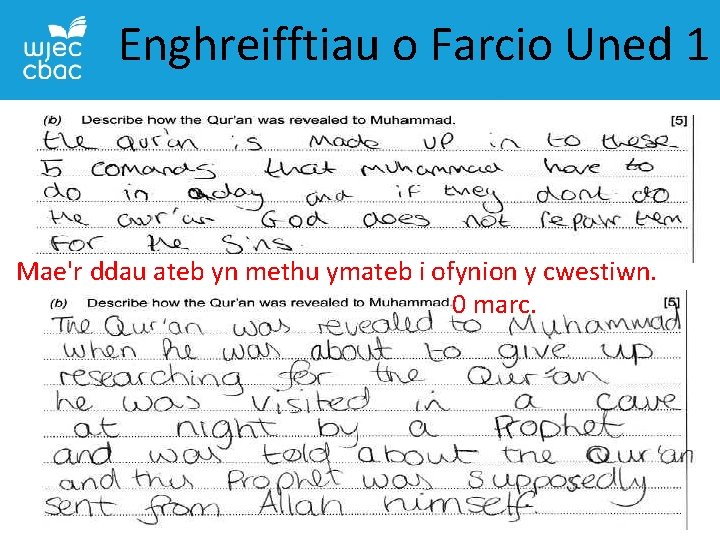 wjec
cbac
Enghreifftiau o Farcio Uned 1
(b) Describe how the Qur'an was revealed to Muhammad. [5]
the qur'an is made up in to these
5 comands that muhammad have to
do in a day and if they dont do
the qur'an God does not repaw tem
For the Sins.
Mae'r ddau ateb yn methu ymateb i ofynion y cwestiwn.
0 marc.
(b) Describe how the Qur'an was revealed to Muhammad. [5]
The Qur'an was revealed to Muhammad
when he was about to give up
researching for the Qur'an
he was visited in a cave
at night by a Prophet
and was told about the Qur'an
and this Prophet was supposedly
sent from Allah himself.